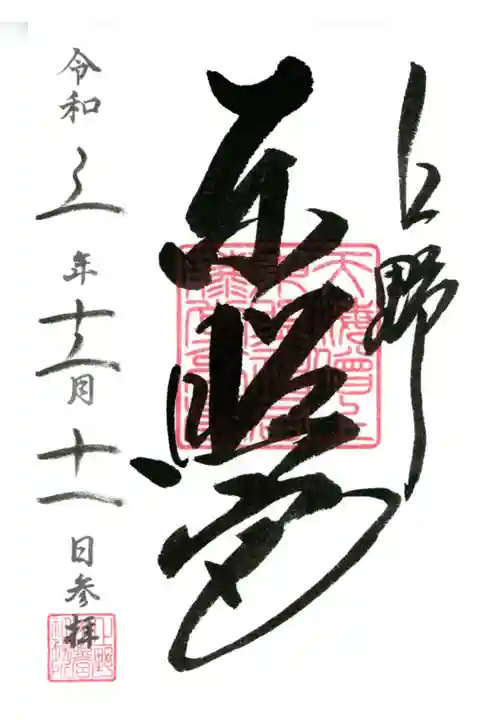 上野
東照宮
令和三年十二月十一日参拝